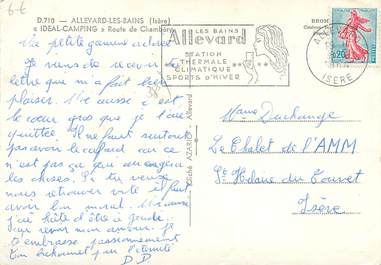 D.710 - ALLEVARD-LES-BAINS (Isère)
« IDEAL-CAMPING » Route de Chambéry
LES BAINS
Allevard
STATION
THERMALE
CLIMATIQUE
SPORTS d'HIVER
0,20
ISERE
Cliché AZARIO - Allevard
Ma petite gamine adorée
Je viens de recevoir
lettre qui m'a fait bien
plaisir. Moi aussi c'est
le cœur gros que je t'ai
quittée. Il ne faut surtout
pas avoir le cafard car ce
n'est pas ça qui arrangera
les choses. Si tu veux
nous retrouver vite il faut
avoir bon moral. Moi aussi
j'ai hâte d'être à jeudi
pour revoir mon amour. Je
t'embrasse passionnément
Ton pour l'éternité
D.D
Mme Duchange
Le Chalet de l'AMM
St Hilaire du Touvet
Isère